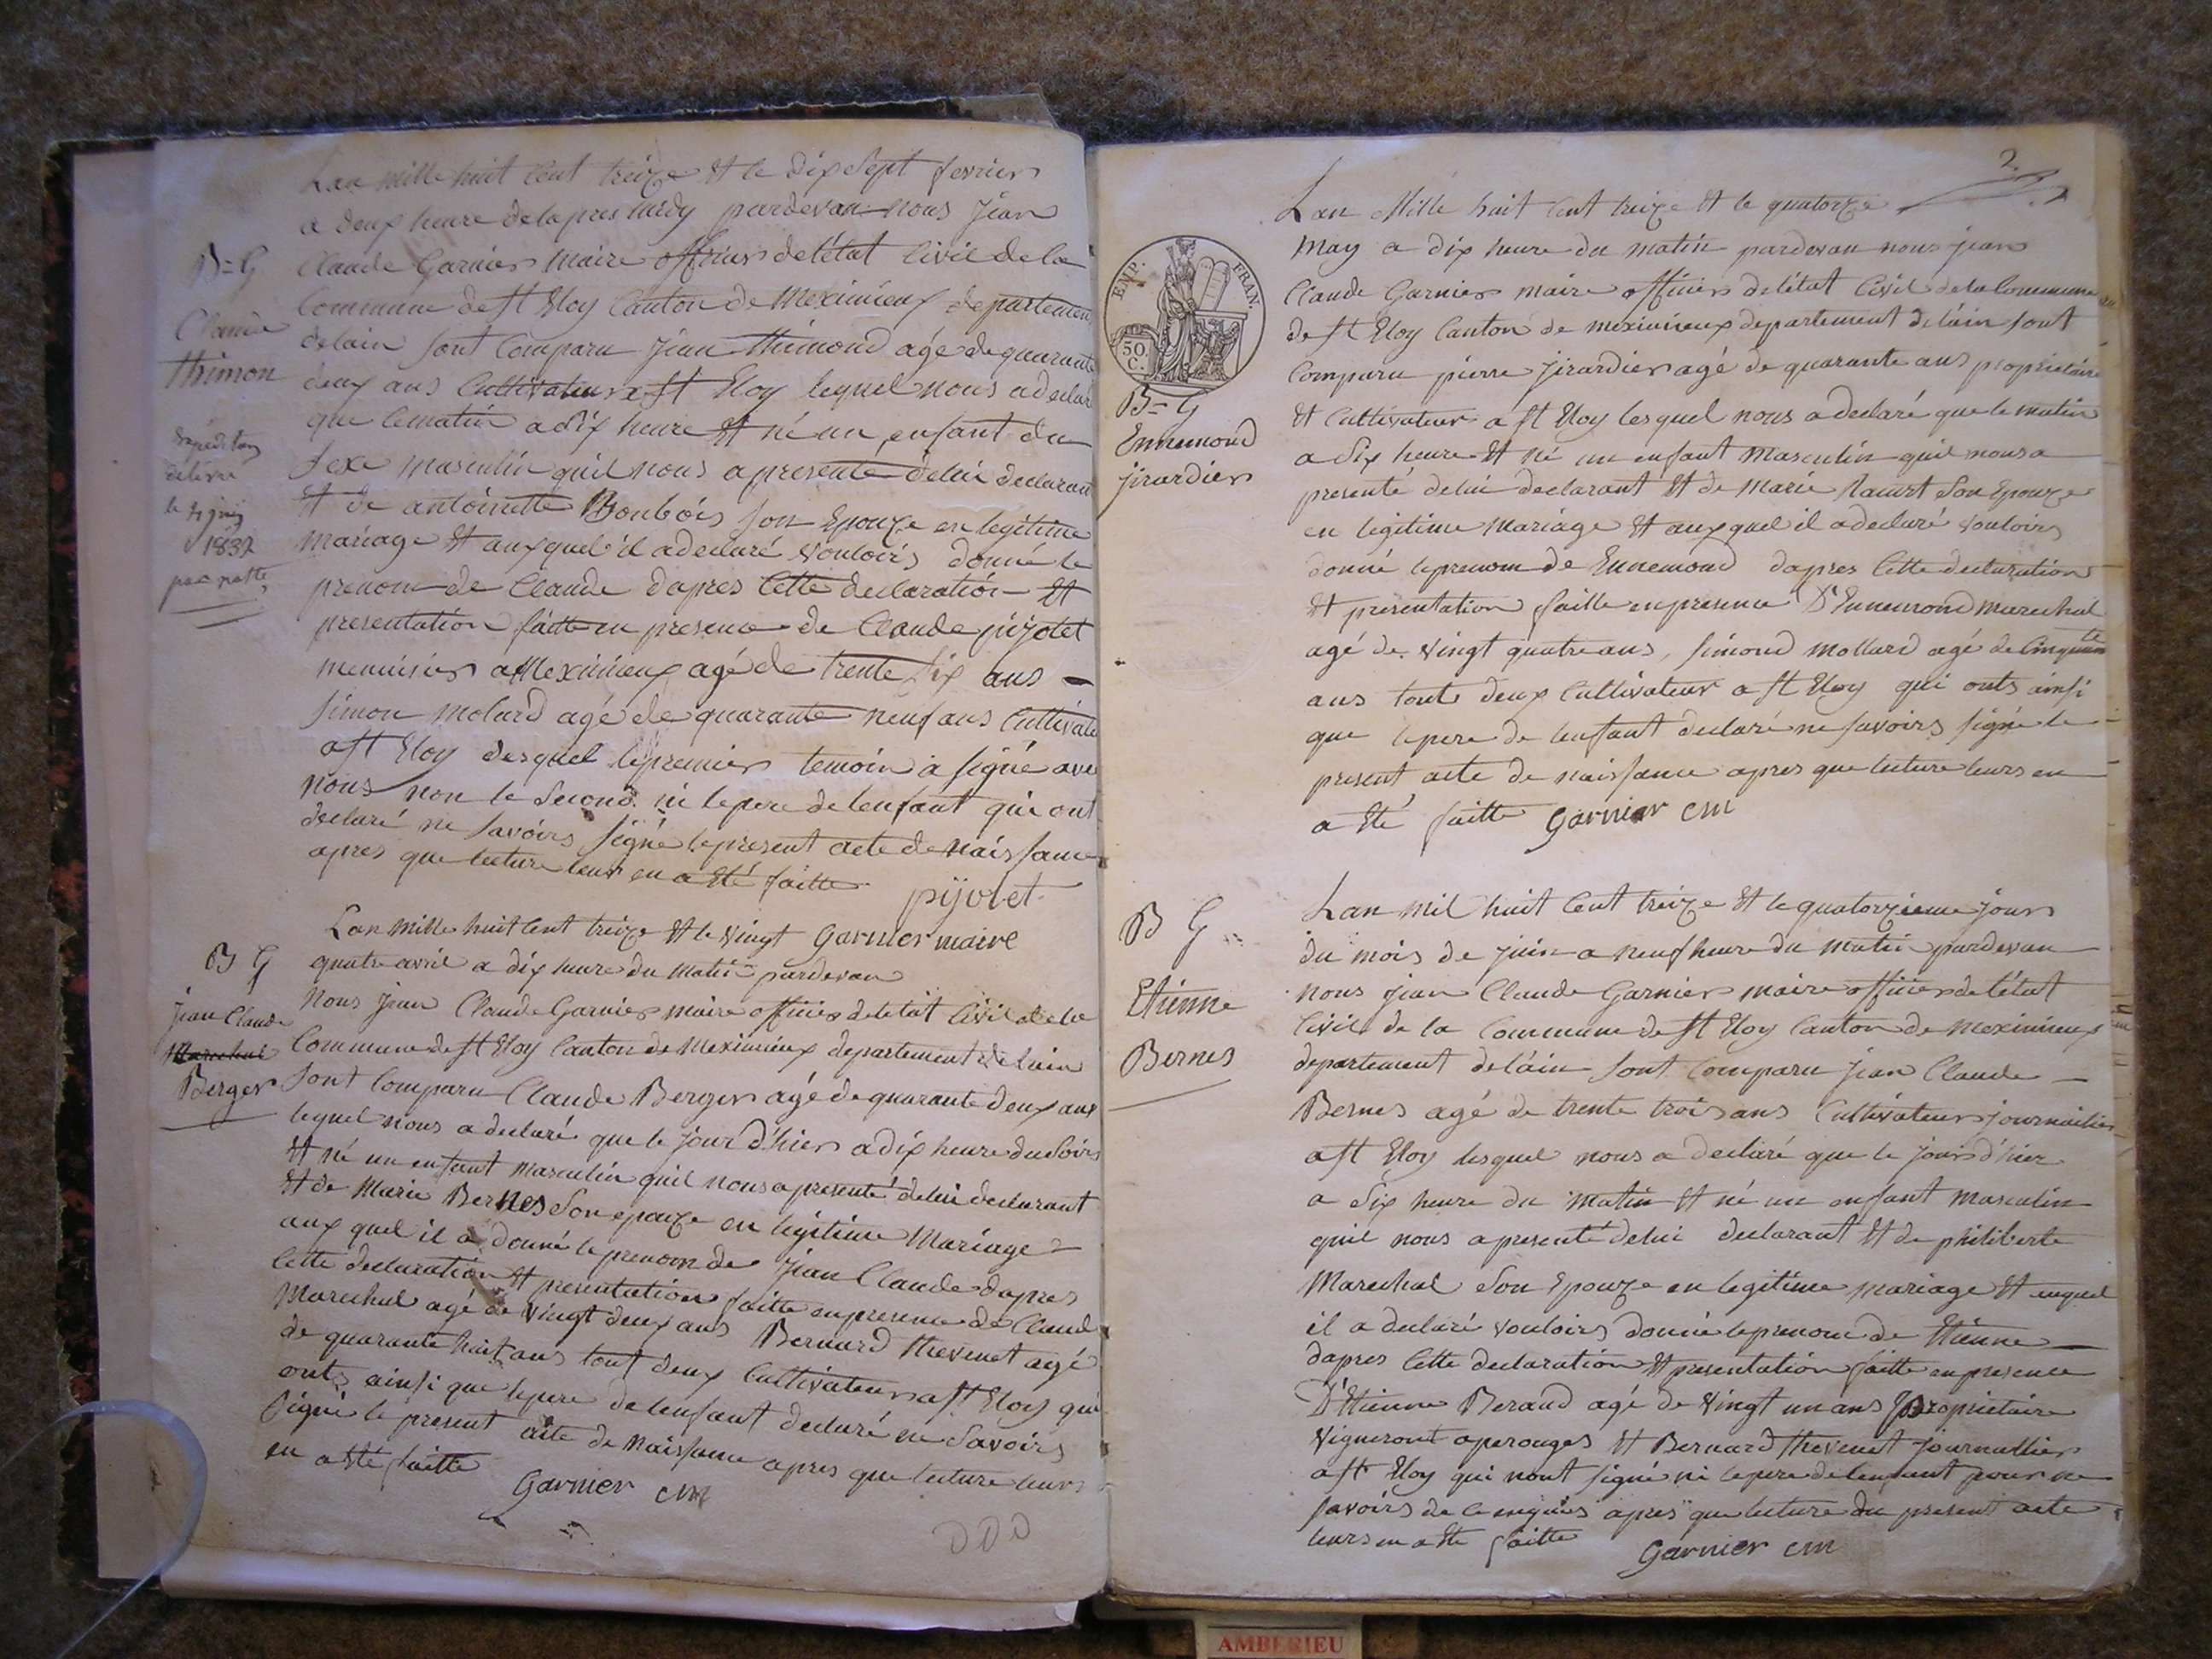 Lan mille huit Cent treize Et le dix Sept fevrier
a deux heure delapres midy pardevan nous Jean
Claude Garnier maire officier delétat Civil de la
Commune de St Eloy Canton de Meximieux departement
delain Sont Comparu Jean thimond agé de quarante
deux ans Cultivateur a St Eloy lequel nous a declaré
que lematin a dix heure Et né un enfant du
Sexe masculin quil nous a presente delui declarant
Et de antoinette Bonbois son Epouze en legitime
mariage Et auxquel il a declaré vouloirs donné le
prenom de Claude dapres Cette declaration Et
presentation faitte en presence de Claude pijolet
menuisier a Meximieux agé de trente Six ans
Simon molard agé de quarante neuf ans Cultivate
a St Eloy desquel lepremier temoin a signé avec
nous non le Second ni lepere delenfant qui ont
declaré ne Savoirs Signé lepresent acte de naissance
apres que lecture leur en a Eté faitte
pijolet
Garnier maire
B=G
Claude
thimon
Expedition
délivré
1832
Lan mille huit Cent treize Et le vingt
quatre avril a dix heure du matin pardevan
Nous Jean Claude Garnier maire officier deletat Civil de la
Commune de St Eloy Canton de Meximieux departement de lain
Sont Comparu Claude Berger agé de quarante deux ans
lequel nous a declaré que le jour d'hier a dix heure du Soirs
Et né un enfant masculin quil nous a presenté delui declarant
Et de Marie Bernes Son epouze en legitime Mariage
aux quel il a donné le prenom de Jean Claude dapres
Cette declaration Et presentation faitte en presence de Claud
Marechal agé de vingt deux ans Bernard thevenet agé
de quarante huit ans tout deux Cultivateur a St Eloy qui
onts ainsi que lepere delenfant declaré ne Savoirs
Signé le present acte de Naissance apres que lecture leurs
en a Eté faitte
Garnier cm
B G
Jean Claude
Marechal
Berger
2
Lan Mille huit Cent treize Et le quatorze
May a dix heure du matin pardevan nous jean
Claude Garnier maire officier delétat Civil dela Commune
de St Eloy Canton de meximieux departement delain Sont
Comparu pierre jirardier agé de quarante ans propriétaire
Et Cultivateur a St Eloy lesquel nous a declaré que le matin
a Six heure Et né un enfant Masculin quil nous a
presenté delui declarant Et de Marie Son Epouze
en legitime Mariage Et auxquel il a declaré vouloirs
donné leprenom de Ennemond dapres Cette declaration
Et présentation faitte enpresence D'Ennemond Marechal
agé de vingt quatre ans, Simond Mollard agé de Cinquante
ans touts deux Cultivateur a St Eloy qui onts ainsi
que lepere de lenfant declaré ne Savoirs Signé le
present acte de naissance apres que lecture leurs en
a Eté faitte Garnier cm
EMP. FRAN.
50
C.
B=G
Ennemond
jirardier
Lan Mil huit Cent treize Et le quatorzieme jours
du mois de juin a neuf heure du matin pardevan
nous jean Claude Garnier maire officier delétat
Civil de la Commune de St Eloy Canton de Meximieux
departement delain Sont Comparu jean Claude
Bernes agé de trente trois ans Cultivateur journailier
a St Eloy lesquel nous a declaré que le jours d'hier
a Six heure du matin Et né un enfant masculin
quil nous a presenté delui declarant Et de philiberte
Marechal Son Epouze en legitime mariage Et auquel
il a declaré vouloirs donné leprenom de Etienne
dapres Cette declaration Et presentation faitte en presence
D'Etienne Beraud agé de vingt un ans Proprietaire
vigneront a perouges Et Bernard thevenet journallier
a St Eloy qui nont Signé ni lepere delenfant pour ne
Savoirs de apres que lecture du present acte
leurs en a Eté faitte Garnier cm
B G
Etienne
Bernes
AMBERIEU